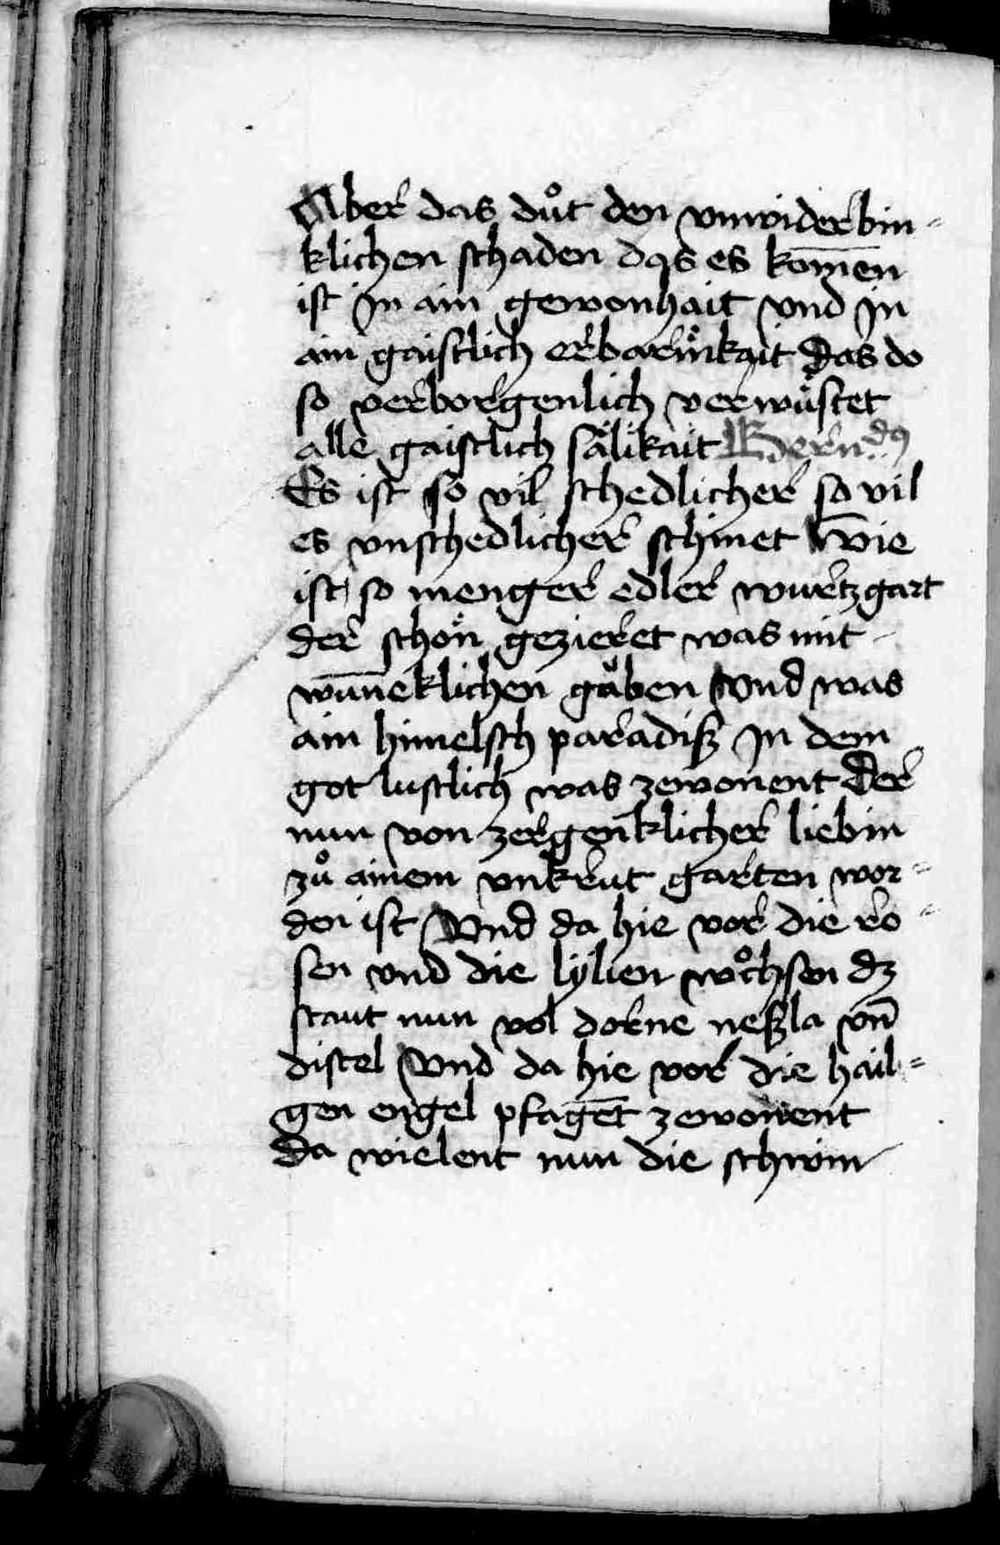 Aber das duͦt den vnwiderbin-
klichen schaden das es kom̄en
ist in ain gewonhait vnd in
ain gaistlich erbarmkait Das do
so verborgenlich verwuͤstet
alle gaistlich sälikait Bern dꝰ
Es ist so vil schedlicher so vil
es vnschedlicher schinet Wie
ist so menger edler wurtzgart
der schoͤn gezieret was mit
wun̄eklichen gauben Vnd was
ain himelsch paradiß In dem
got lustlich was zewonent Der
nun von zergenklicher liebin
zuͦ ainem vnkrut garten wor-
den ist Vnd da hie vor die ro-
sen vnd die lÿlien woͤchsen dz
staut nun vol dorne neßla vn̄
distel Vnd da hie vor die hail-
gen engel pflagēt zewonent
da wielent nun die schwin